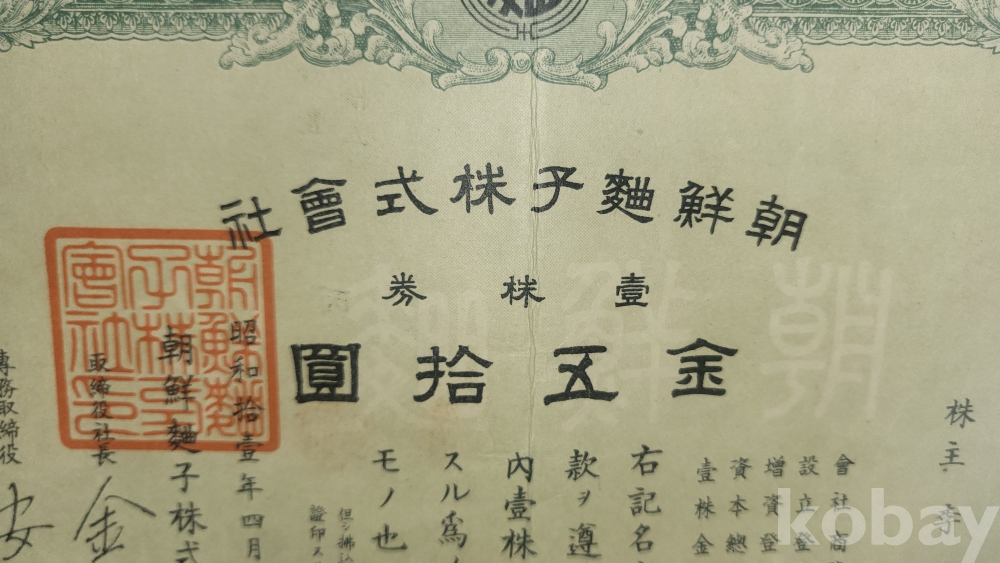 朝鮮麯子株式會社
壹株券
金五拾圓
株主 李
會社商
設立登
增資登
資本總
壹株金
右記名
款ヲ遵
內壹株
スル爲
モノ也
但シ拂
證印ス
昭和拾壹年四月
朝鮮麯子株式
取締役社長
金
專務取締役
安
朝鮮麯子株式會社之印
朝鮮麯
kobay